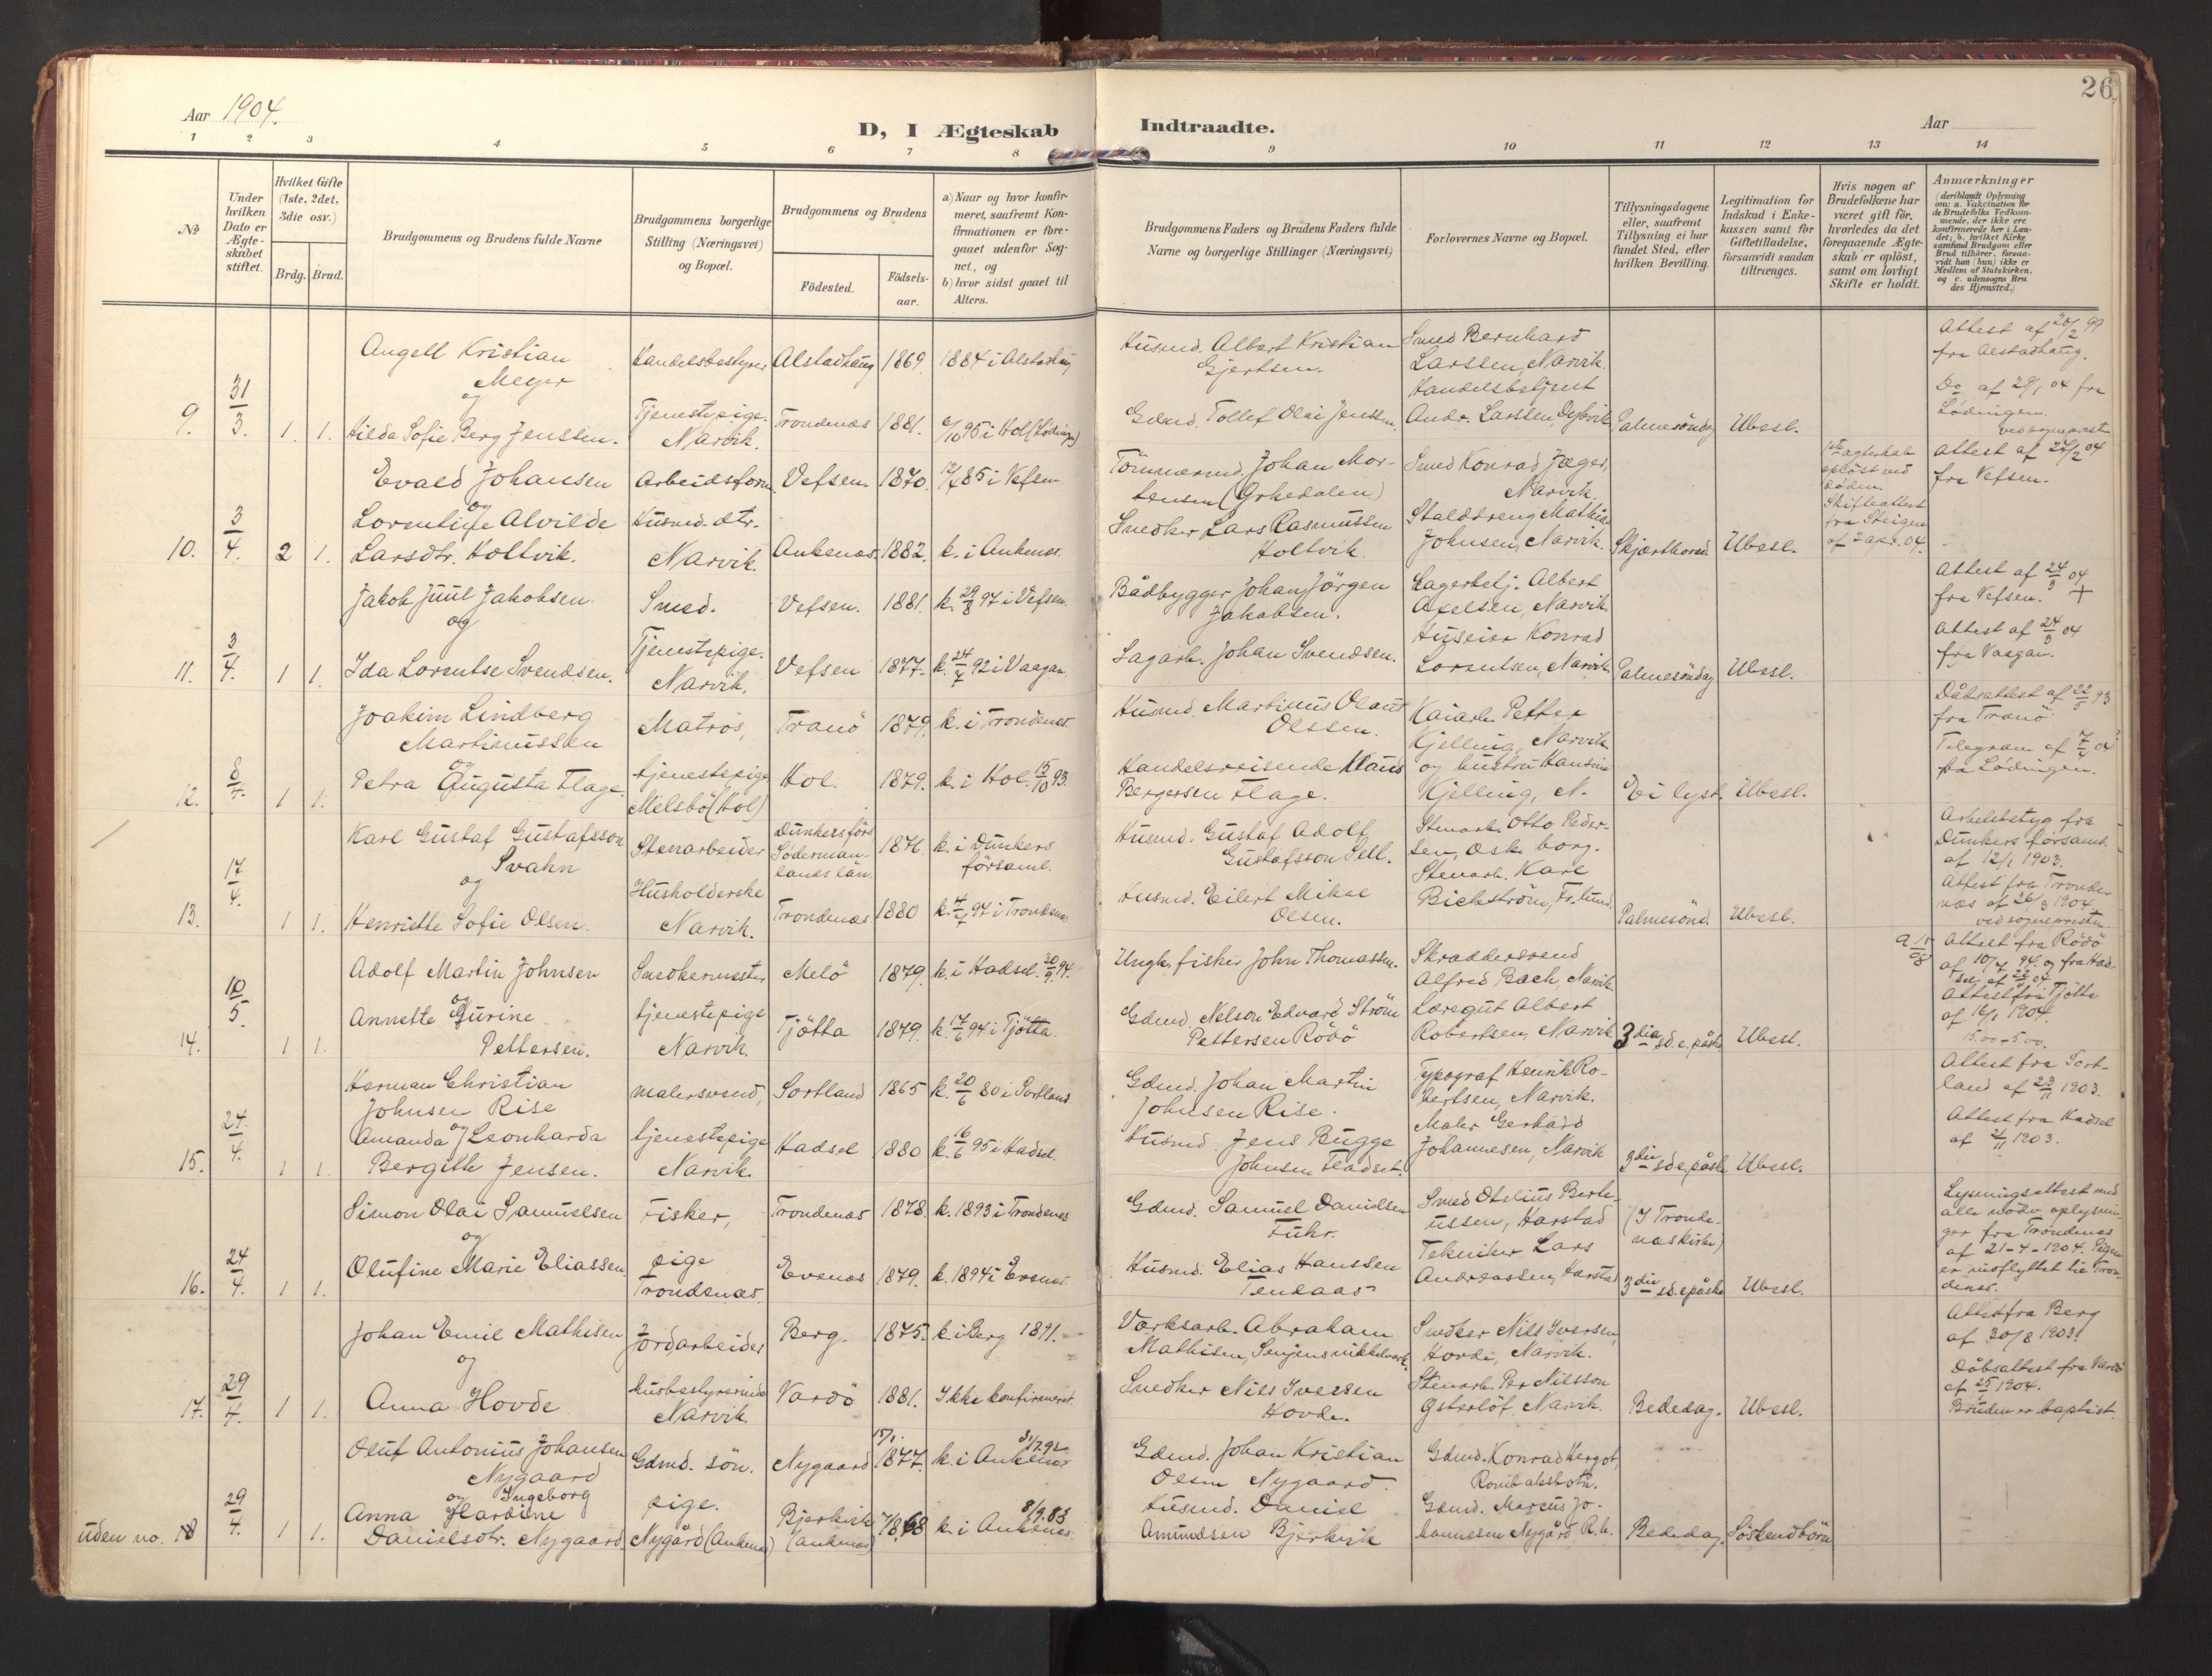 Aar 1904.
D, I Ægteskab
Indtraadte.
Aar
26
1 2 3 4 5 6 7 8 9 10 11 12 13 14
No
Under hvilken Dato er Ægteskabet stiftet.
Hvilket Gifte (1ste, 2det, 3die osv.)
Brdg. Brud.
Brudgommens og Brudens fulde Navne
Brudgommens borgerlige Stilling (Næringsvei) og Bopæl.
Brudgommens og Brudens
Födested. Födselsaar.
a) Naar og hvor konfirmeret, saafremt Konfirmationen er foregaaet udenfor Sognet, og
b) hvor sidst gaaet til Alters.
Brudgommens Faders og Brudens Faders fulde Navne og borgerlige Stillinger (Næringsvei)
Forlovernes Navne og Bopæl.
Tillysningsdagene eller, saafremt Tillysning ei har fundet Sted, efter hvilken Bevilling.
Legitimation for Indskud i Enkekassen samt for Giftetilladelse, forsaavidt saadan tiltrænges.
Hvis nogen af Brudefolkene har været gift för, hvorledes da det foregaaende Ægteskab er oplöst, samt om lovligt Skifte er holdt.
Anmærkninger
(deriblandt Oplysning om: a. Vakcination for de Brudefolks Vedkommende, der ikke ere konfirmerede her i Landet; b. hvilket Kirkesamfund Brudgom eller Brud tilhörer, forsaavidt han (hun) ikke er Medlem af Statskirken, og c. udensogns Brudes Hjemsted.)
Angell Kristian Meyer
Handelsbestyrer Alstadhaug 1869. 1884 i Alstadhaug
Husmd. Albert Kristian Gjertsen.
Smed Bernhard Larssen, Narvik.
Attest af 20/2 99 fra Alstadhaug.
og
9. 31/3. 1. 1. Hilda Sofie Berg Jenssen.
Tjenestepige. Narvik. Trondenæs 1881. 6/10 95 i Hol (Lödingen)
Gdmd. Tollef Olai Jenssen.
Handelsbetjent Andr. Larssen, Dybvik
Palmesöndag Ubesl.
Do af 29/1 04 fra Lödingen.
ved sogneprest
Evald Johansen
Arbeidsform. Vefsen. 1870. 12/7 85 i Vefsen
Tömmermd. Johan Mortensen
Smed Konrad Jæger, Narvik.
1ste ægteskab oplöst ved döden. Skifteattest fra Steigen af 2 apr. 04.
Attest af 24/2 04 fra Vefsen.
og
10. 3/4. 2 1. Lorentine Alvilde Larsdtr. Holtvik.
Husmd. dtr. Narvik. Ankenæs. 1882. k. i Ankenes.
Snedker Lars Rasmussen Holtvik.
Staldsreng Mathias Johnsen, Narvik.
Skjærthorsd. Ubesl.
Jakob Juul Jakobsen.
Smed. Vefsen. 1881. k. 29/8 97 i Vefsen.
Bådbygger Johan Jörgen Jakobsen.
Lagerbetj. Albert Axelsen, Narvik.
Attest af 24/3 04 fra Vefsen. +
og
11. 3/4. 1 1. Ida Lorentse Svendsen.
Tjenestepige. Narvik. Vefsen 1877. k. 24/7 92 i Vaagan.
Lagarb. Johan Svendsen.
Huseier Konrad Lorentsen, Narvik.
Palmesöndag Ubesl.
Attest af 24/3 04 fra Vaagan.
Joakim Lindberg Martinussen
Matros, Tranö 1879. k. i Trondenes.
Husmd. Martinus Olaus Olssen.
Kaiarb. Petter Kjelling, Narvik.
Dåbsattest af 22/5 93 fra Tranö.
og
12. 8/4. 1 1. Petra Augusta Flage.
tjenestepige Melsbö (Hol) Hol. 1879. k. i Hol. 15/10 93.
Handelsreisende Klaus Bergersen Flage.
og hustru Hansine Kjelling, N.
Ei lyst. Ubesl.
Telegram af 7/4 04 fra Lödingen.
Karl Gustaf Gustafsson Svahn
Stenarbeider Dunkersförs Södermanlands län. 1876 k. i Dunkers församl.
Husmd. Gustaf Adolf Gustafsson Sell.
Stenarb. Otto Pedersen, Osk. borg.
Arbetsbetyg fra Dunkers församl. af 12/1 1903.
og
13. 17/4. 1 1. Henriette Sofie Olsen.
Husholderske Narvik. Trondenæs 1880 k. 4/7 97 i Trondenæs
Husmd. Eilert Mikal Olsen.
Stenarb. Karl Bickström, Fr. lund.
Palmesönd. Ubesl.
Attest fra Trondenæs af 26/3 1904.
ved sognepresten
Adolf Martin Johnsen
Snedkermester Melö 1879. k. i Hadsel. 30/9 94.
Ungk. fisker John Thomassen.
Skræddersvend Alfred Bach, Narvik.
Attest fra Rödö af 10/7 94. og fra Hadsel af 22/3 04.
og
14. 10/5. 1 1. Annette Gurine Pettersen.
tjenestepige Narvik. Tjötta 1879. k. 17/6 94 i Tjötta.
Gdmd. Nelson Edvard Ström Pettersen Rödö
Læregut Albert Robertsen, Narvik
3die sd. e. påske Ubesl.
Attest fra Tjötta af 16/1 1904.
Herman Christian Johnsen Rise
malersvend, Sortland 1865 k. 20/6 80 i Sortland.
Gdmd. Johan Martin Johnsen Rise.
Typograf Henrik Robertsen, Narvik.
Attest fra Sortland af 23/11 1903.
15. 24/4. 1 1. Amanda og Leonharda Bergithe Jensen.
tjenestepige Narvik. Hadsel 1880 k. 16/6 95 i Hadsel.
Husmd. Jens Bugge Johnsen Fladset.
Maler Gerhard Johannesen, Narvik
3die sd. e. påske Ubesl.
Attest fra Hadsel af 2/11 1903.
Simon Olai Samuelsen
Fisker, Trondenæs 1878. k. 1893 i Trondenæs
Gdmd. Samuel Danielsen Fuhr.
Smed Otelius Berteussen, Harstad
(I Trondenæs kirke)
Lysningsattest med alle nödv. oplysninger fra Trondenæs af 21-4-1904. Pigen er indflyttet til Trondenes.
og
16. 24/4. 1 1. Olufine Marie Eliassen.
pige Trondenæs. Evenes 1879. k. 1894 i Evenes.
Husmd. Elias Hanssen Tendaas
Tekniker Lars Andreassen, Harstad
3die sd. e. påske Ubesl.
Johan Emil Mathisen
Jordarbeider Berg. 1875. k. i Berg 1891.
Værksarb. Abraham Mathisen, Senjens nikkelverk.
Snedker Nils Iversen Hovde, Narvik.
Attest fra Berg af 30/8 1903.
og
17. 29/4. 1 1. Anna Hovde
husbestyrerinde Narvik. Vardö 1881. Ikke konfirmeret.
Snedker Nils Iversen Hovde.
Stenarb. Per Nilsson Østerlöf, Narvik.
Bededag. Ubesl.
Dåbsattest fra Vardö af 25/1 1904.
Bruden er baptist.
Oluf Antonius Johansen Nygaard
Gdmd. sön. Nygaard 15/1. 1877. k. i Ankenæs 31/7.92
Gdmd. Johan Kristian Olsen Nygaard.
Gdmd. Konrad Hergot, Rombaksbotn.
og
uden no. 18 29/4. 1 1. Anna Ingeborg Hardine Danielsdtr. Nygaard
pige. Nygård (Ankenæs) Bjerkvik (Ankenes) 1868 k. i Ankenes. 8/9.83
Husmd. Daniel Amundsen Bjerkvik
Gdmd. Marcus Johannesen Nygård R. b.
Bededag. Söskendbörn